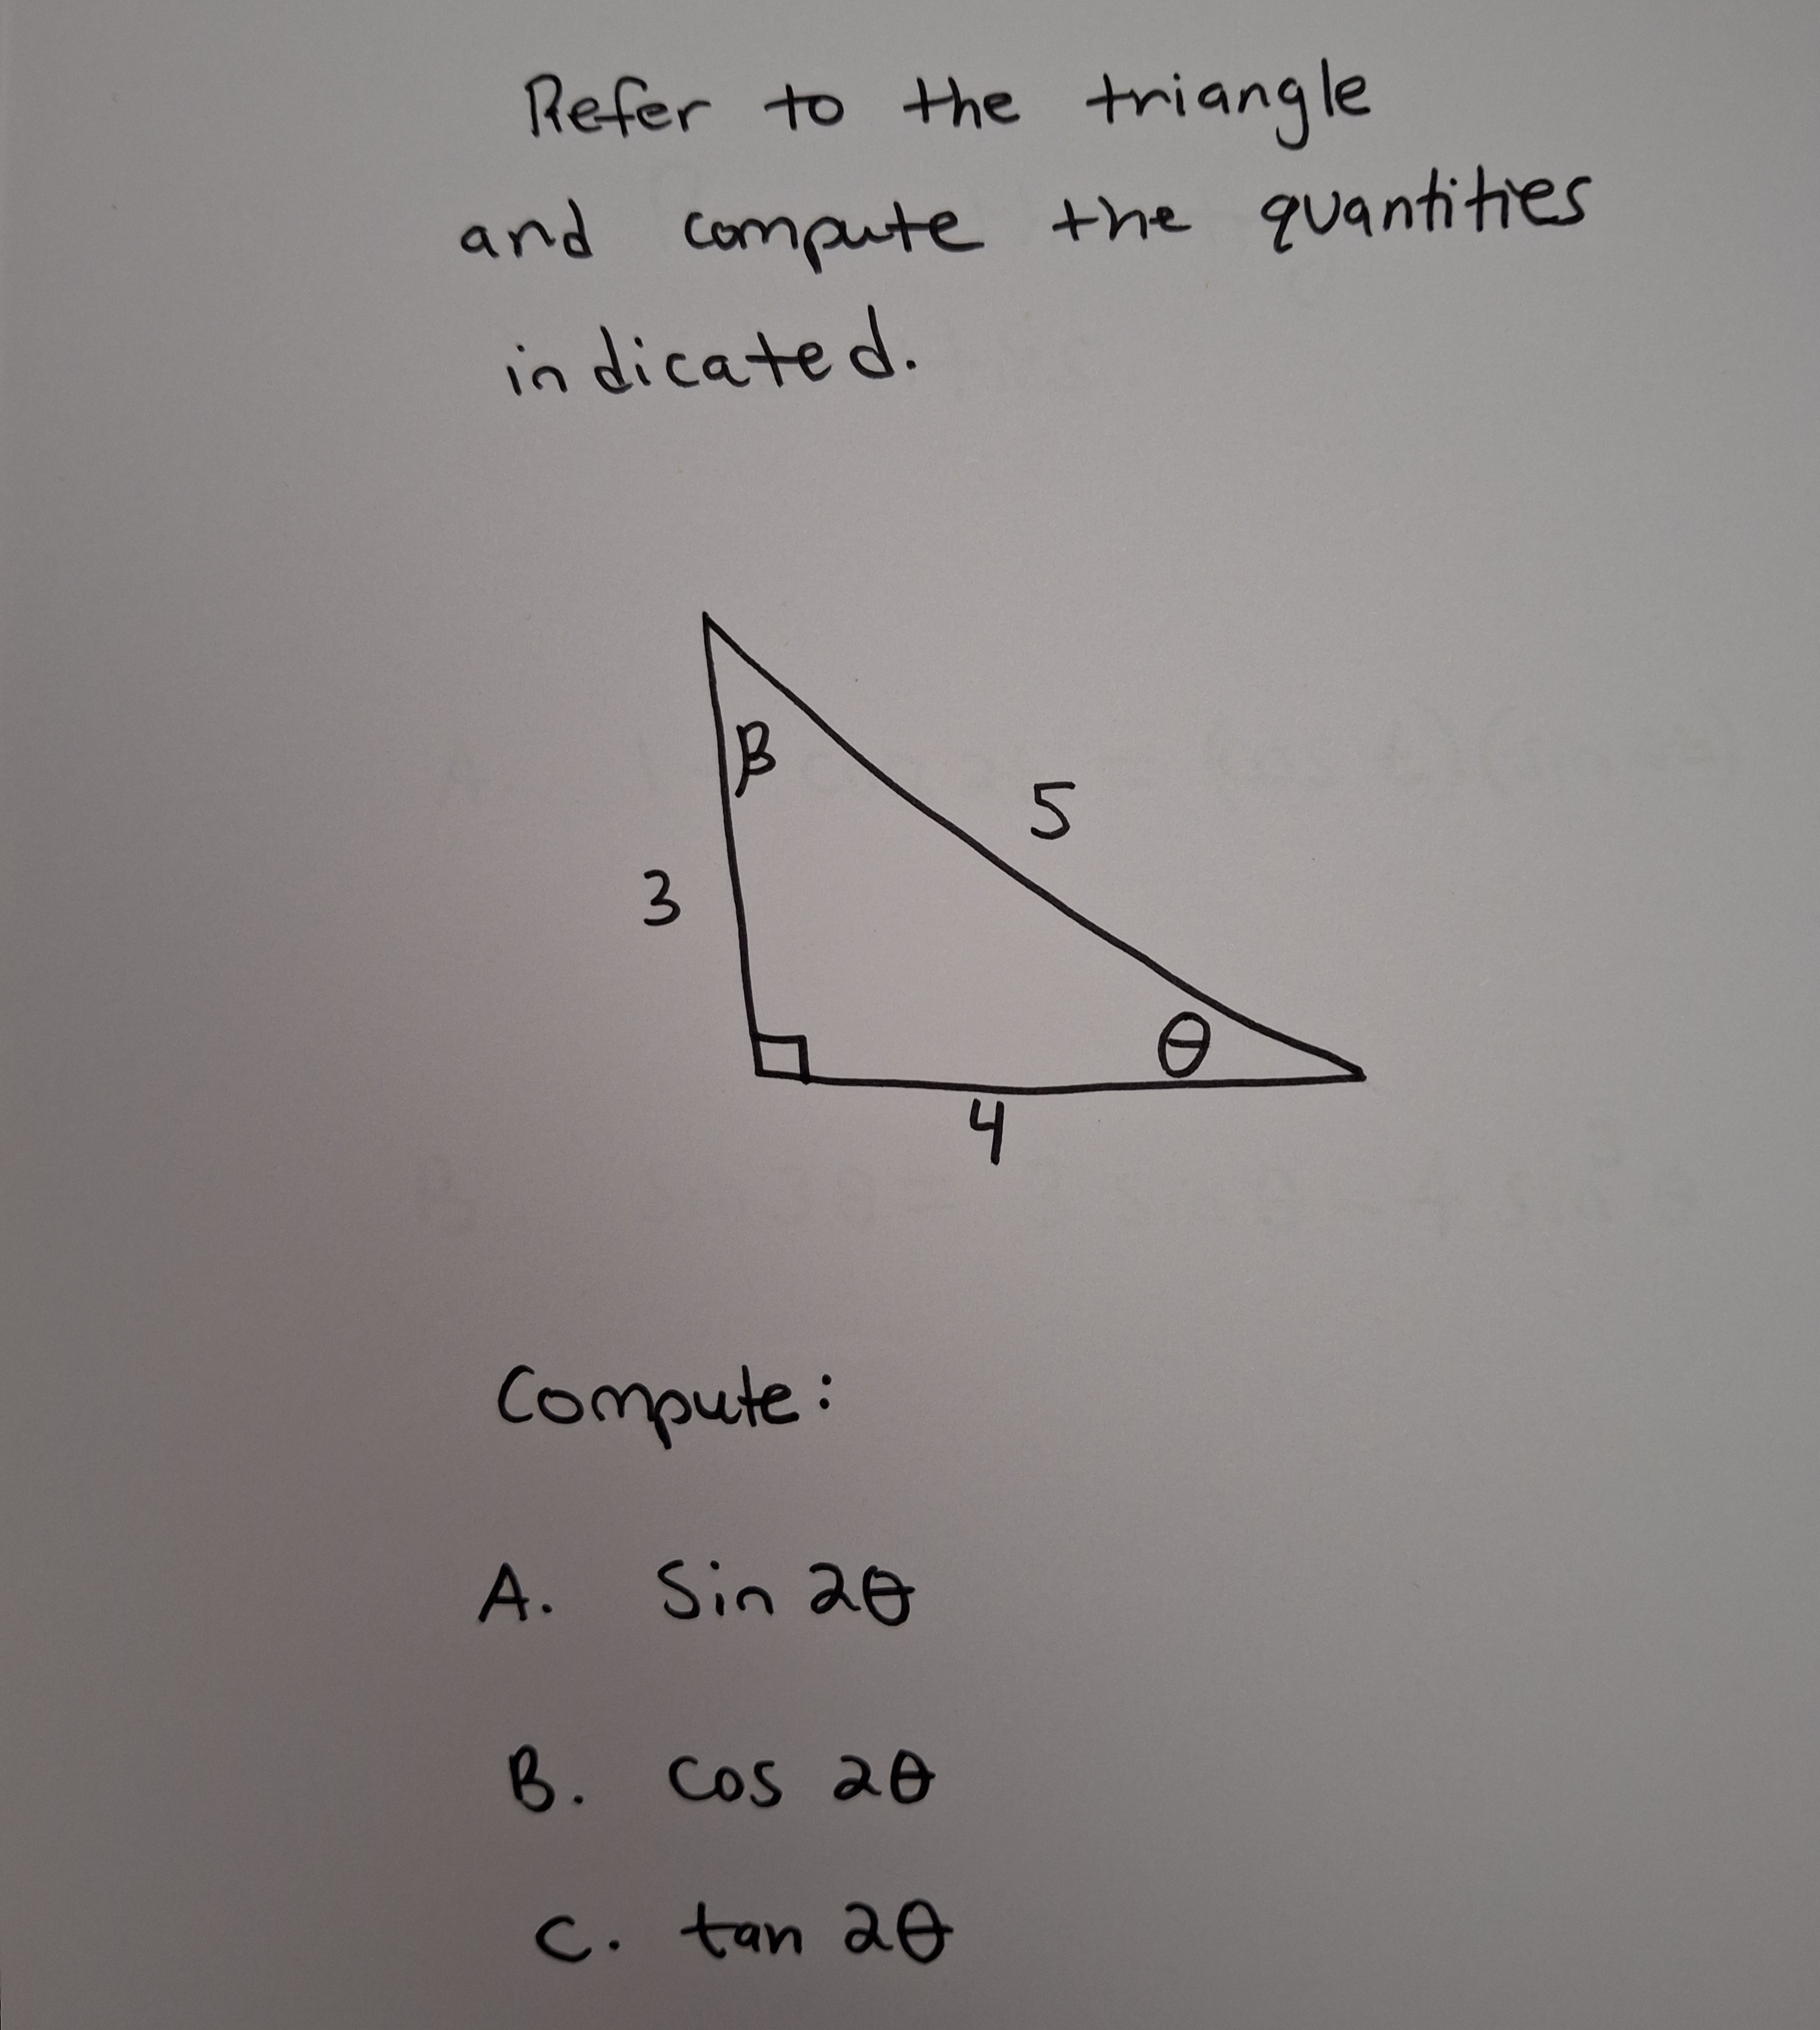 Refer to the triangle
and compute the quantities
indicated.
β
5
3
θ
4
Compute:
A. Sin 2θ
B. Cos 2θ
C. tan 2θ